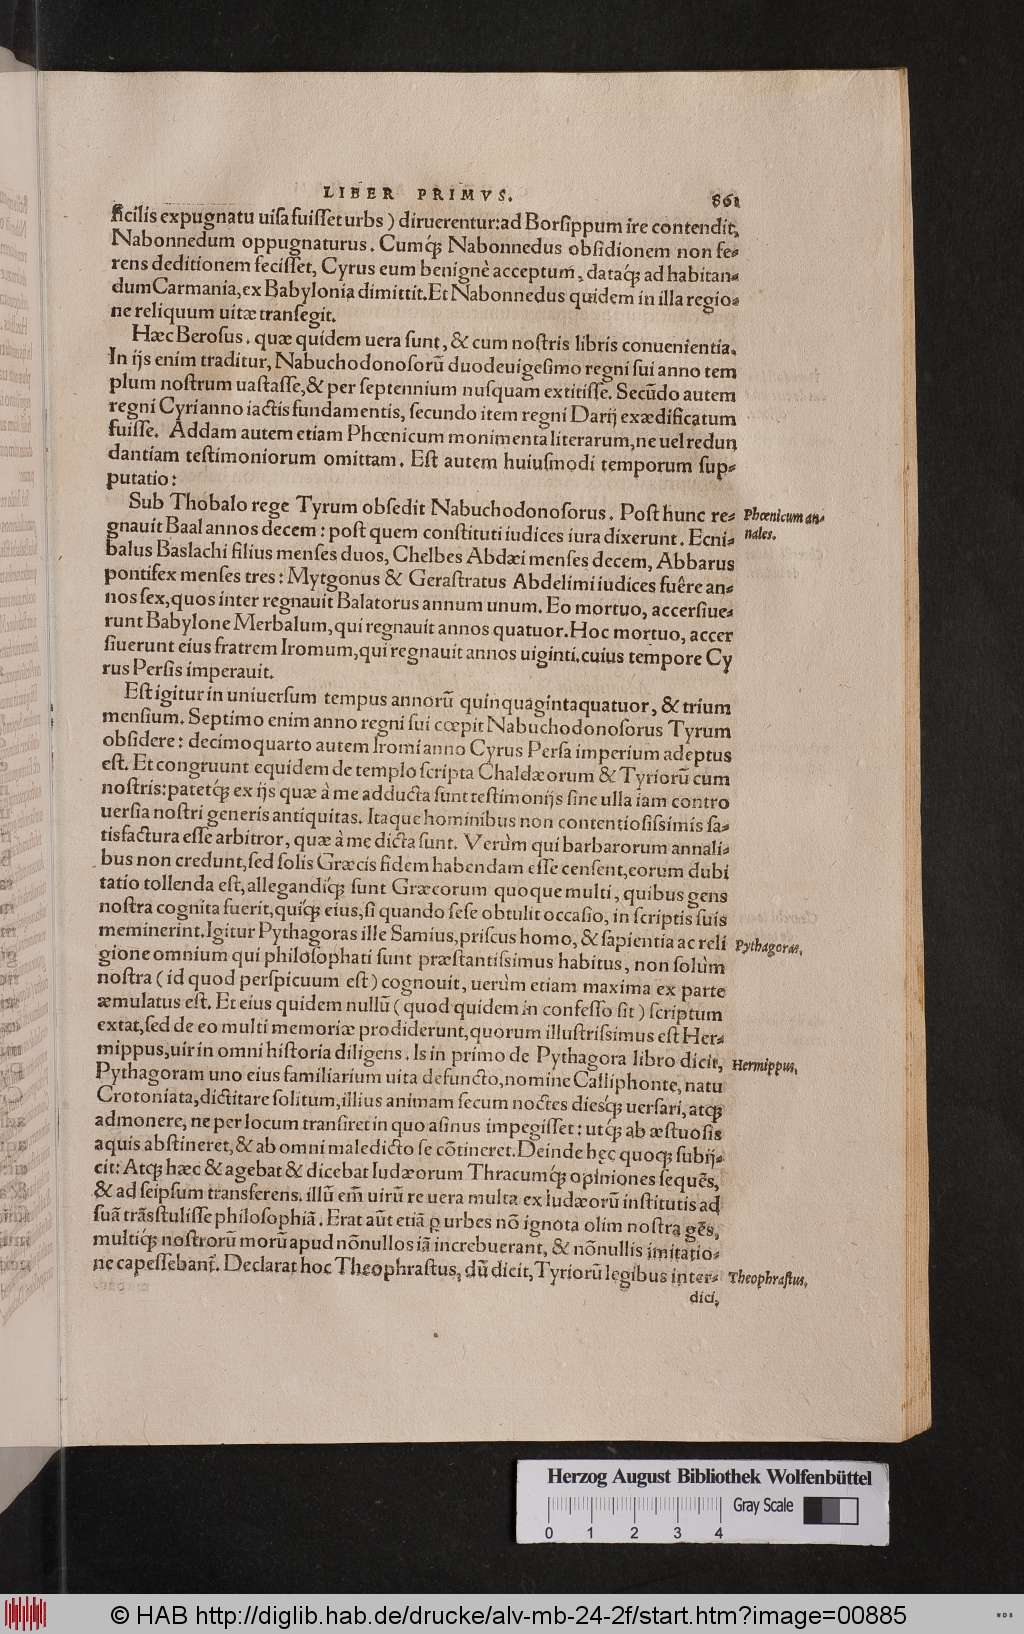 LIBER PRIMVS. 861
ficilis expugnatu uisa fuisset urbs) diruerentur: ad Borsippum ire contendit,
Nabonnedum oppugnaturus. Cumq́; Nabonnedus obsidionem non fe-
rens deditionem fecisset, Cyrus eum benignè acceptum, dataq́; ad habitan-
dum Carmania, ex Babylonia dimittit. Et Nabonnedus quidem in illa regio-
ne reliquum uitæ transegit.
Hæc Berosus. quæ quidem uera sunt, & cum nostris libris conuenientia.
In ijs enim traditur, Nabuchodonosorũ duodeuigesimo regni sui anno tem
plum nostrum uastasse, & per septennium nusquam extitisse. Secũdo autem
regni Cyri anno iactis fundamentis, secundo item regni Darij exædificatum
fuisse. Addam autem etiam Phœnicum monimenta literarum, ne uel redun
dantiam testimoniorum omittam. Est autem huiusmodi temporum sup-
putatio:
Sub Thobalo rege Tyrum obsedit Nabuchodonosorus. Post hunc re-
Phœnicum an-
gnauit Baal annos decem: post quem constituti iudices iura dixerunt. Ecni-
nales.
balus Baslachi filius menses duos, Chelbes Abdæi menses decem, Abbarus
pontifex menses tres: Mytgonus & Gerastratus Abdelimi iudices fuêre an-
nos sex, quos inter regnauit Balatorus annum unum. Eo mortuo, accersiue-
runt Babylone Merbalum, qui regnauit annos quatuor. Hoc mortuo, accer
siuerunt eius fratrem Iromum, qui regnauit annos uiginti. cuius tempore Cy
rus Persis imperauit.
Est igitur in uniuersum tempus annorũ quinquagintaquatuor, & trium
mensium. Septimo enim anno regni sui cœpit Nabuchodonosorus Tyrum
obsidere: decimoquarto autem Iromi anno Cyrus Persa imperium adeptus
est. Et congruunt equidem de templo scripta Chaldæorum & Tyriorũ cum
nostris: patetq́; ex ijs quæ à me adducta sunt testimonijs sine ulla iam contro
uersia nostri generis antiquitas. Itaque hominibus non contentiosissimis sa-
tisfactura esse arbitror, quæ à me dicta sunt. Verùm qui barbarorum annali-
bus non credunt, sed solis Græcis fidem habendam esse censent, eorum dubi
tatio tollenda est, allegandiq́; sunt Græcorum quoque multi, quibus gens
nostra cognita fuerit, quiq́; eius, si quando sese obtulit occasio, in scriptis suis
meminerint. Igitur Pythagoras ille Samius, priscus homo, & sapientia ac reli
Pythagoras,
gione omnium qui philosophati sunt præstantissimus habitus, non solùm
nostra (id quod perspicuum est) cognouit, uerùm etiam maxima ex parte
æmulatus est. Et eius quidem nullũ (quod quidem in confesso sit) scriptum
extat, sed de eo multi memoriæ prodiderunt, quorum illustrissimus est Her-
mippus, uir in omni historia diligens. Is in primo de Pythagora libro dicit,
Hermippus,
Pythagoram uno eius familiarium uita defuncto, nomine Calliphonte, natu
Crotoniata, dictitare solitum, illius animam secum noctes diesq́; uersari, atq́;
admonere, ne per locum transiret in quo asinus impegisset: utq́; ab æstuosis
aquis abstineret, & ab omni maledicto se cõtineret. Deinde hęc quoq; subij-
cit: Atq; hæc & agebat & dicebat Iudæorum Thracumq́; opiniones sequẽs,
& ad seipsum transferens. illũ em̃ uirũ re uera multa ex Iudæorũ institutis ad
suã trãstulisse philosophiã. Erat aũt etiã ꝑ urbes nõ ignota olim nostra gẽs,
multiq́; nostrorũ morũ apud nõnullos iã increbuerant, & nõnullis imitatio-
ne capessebant̃. Declarat hoc Theophrastus, dũ dicit, Tyriorũ legibus inter-
Theophrastus,
dici,
Herzog August Bibliothek Wolfenbüttel
Gray Scale
0 1 2 3 4
© HAB http://diglib.hab.de/drucke/alv-mb-24-2f/start.htm?image=00885